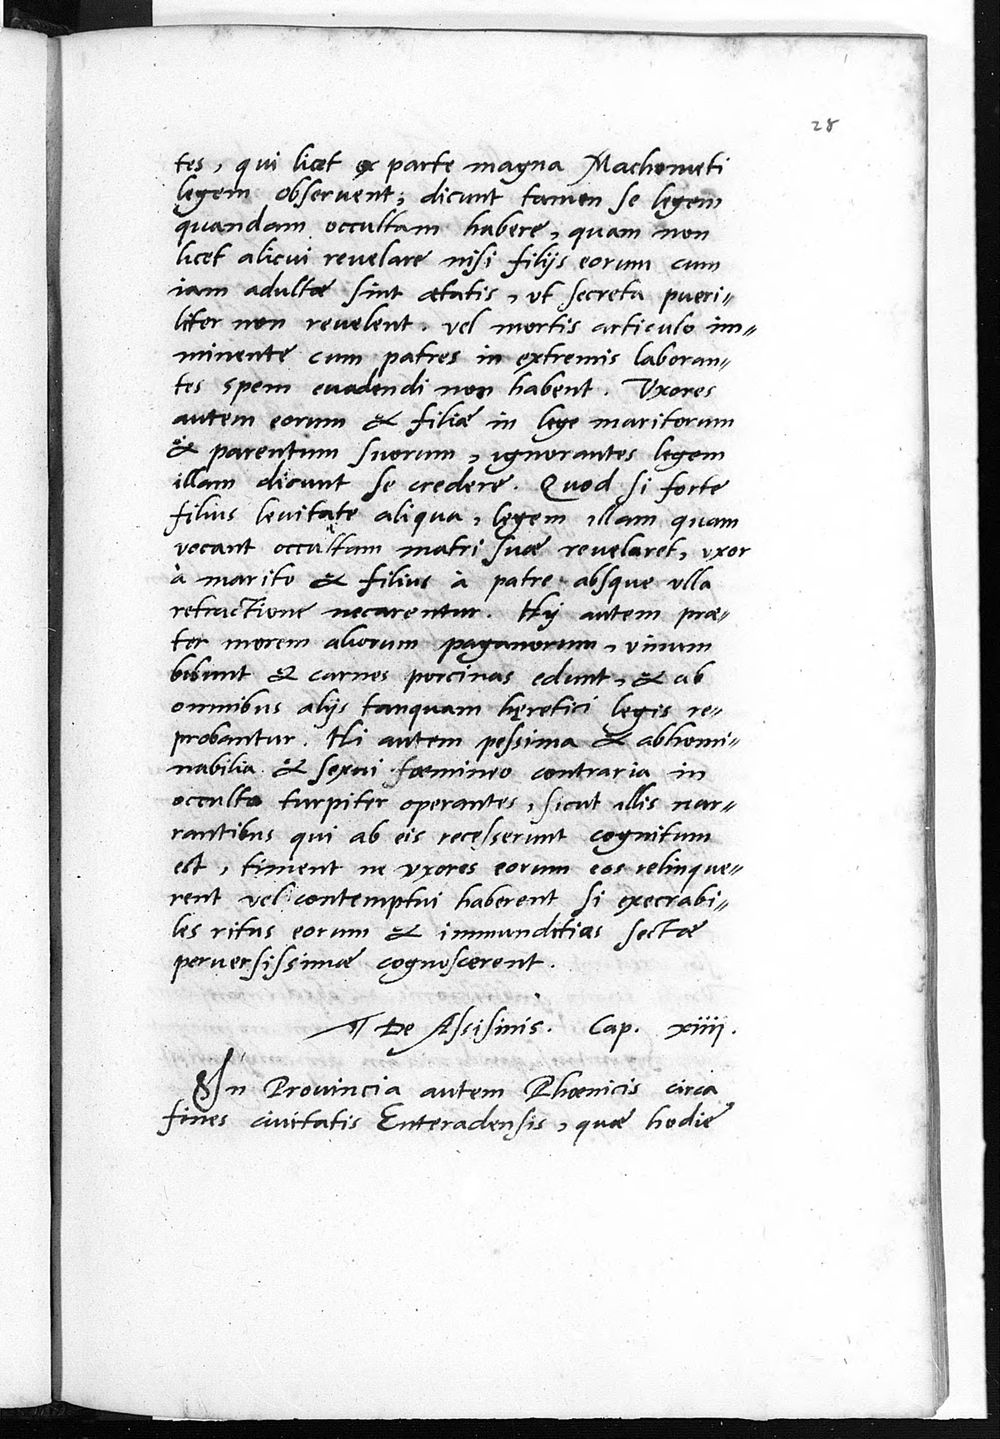 28
tes, qui licet ex parte magna Machometi
legem obseruent; dicunt tamen se legem
quandam occultam habere, quam non
licet alicui reuelare nisi filijs eorum cum
iam adultæ sint ætatis, vt secreta pueri=
liter non reuelent. vel mortis articulo im=
minente cum patres in extremis laboran=
tes spem euadendi non habent. Vxores
autem eorum & filiæ in lege maritorum
& parentum suorum, ignorantes legem
illam dicunt se credere. Quod si forte
filius leuitate aliqua, legem illam quam
vocant occultam matri suæ reuelaret, vxor
à marito & filius à patre absque vlla
retractione necarentur. Hij autem præ=
ter morem aliorum paganorum, vinum
bibunt & carnes porcinas edunt, & ab
omnibus alijs tanquam hęretici legis re=
probantur. Hi autem pessima & abhomi=
nabilia & sexui fœmineo contraria in
occulto turpiter operantes, sicut illis nar=
rantibus qui ab eis recesserunt cognitum
est, timent ne vxores eorum eos relinque=
rent vel contemptui haberent si execrabi=
les ritus eorum & immunditias sectæ
peruersissimæ cognoscerent.
¶ De Assisinis. Cap. xiiii.
In Prouincia autem Phœnicis circa
fines ciuitatis Enteradensis, quæ hodie